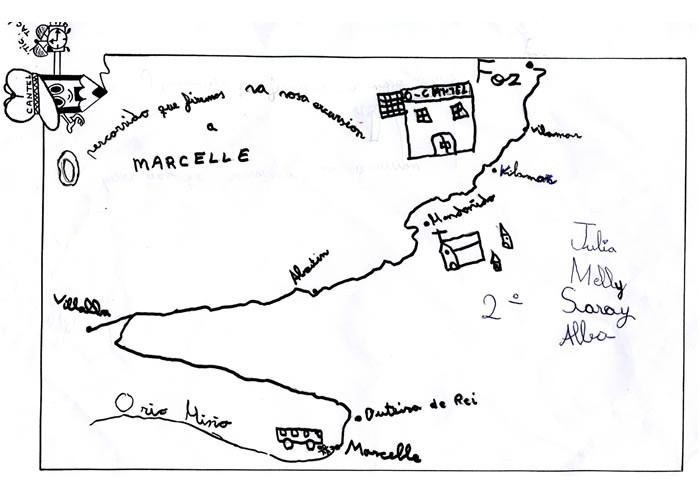 TIC TAC
CANTEL
percorrido que fixemos na nosa excursion
a
MARCELLE
O-CANTEL
Foz
Vilamar
Mondoñedo
Abadin
Villalba
2º
Julia
Melly
Saray
Alba
Outeiro de Rei
O rio Miño
Marcelle